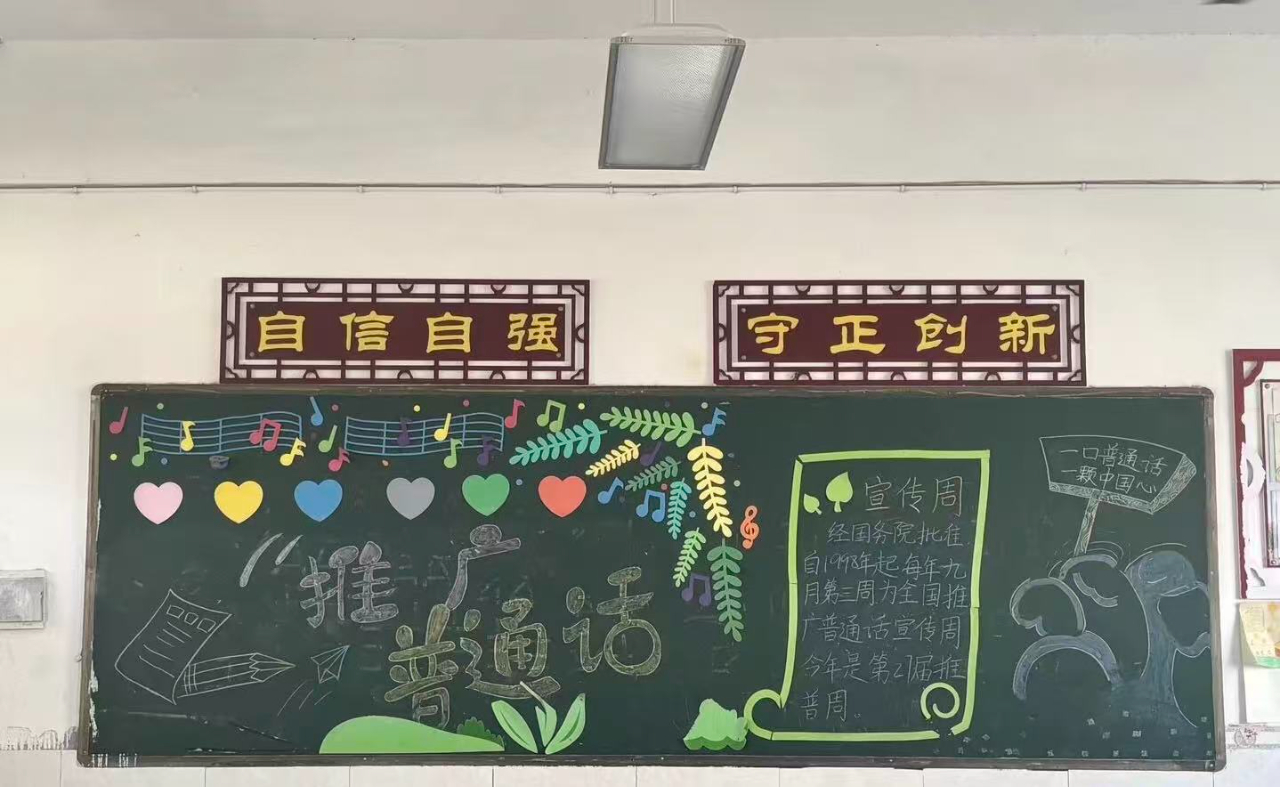 自信自强
守正创新
推广
普通话
宣传周
经国务院批准
自1998年起每年九
月第三周为全国推
广普通话宣传周
今年是第27届推
普周。
一口普通话
一颗中国心